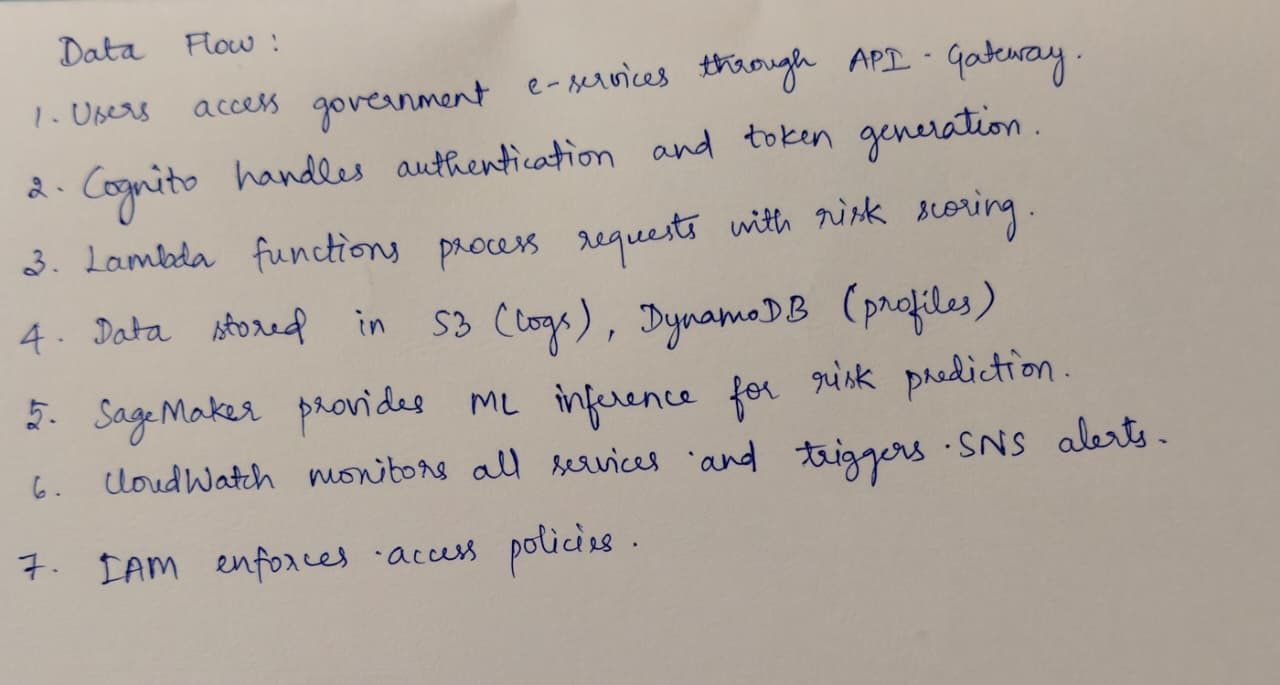 Data Flow :
1. Users access government e-services through API-Gateway.
2. Cognito handles authentication and token generation.
3. Lambda functions process requests with risk scoring.
4. Data stored in S3 (logs), DynamoDB (profiles)
5. SageMaker provides ML inference for risk prediction.
6. CloudWatch monitors all services and triggers SNS alerts.
7. IAM enforces access policies.